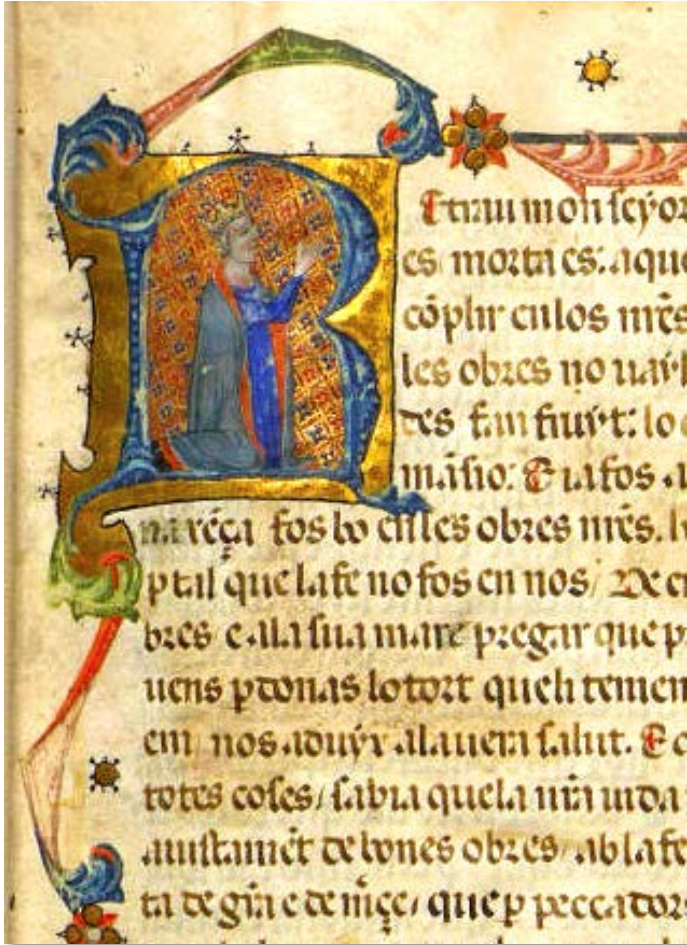 R
Retrau mon seyor
es morta es: aque
cõplir en los nr̃es
les obres no ual
des fan fruyt: lo
mãsio: E ia fos a
naxẽça fos bo en les obres nr̃es.
p tal que la fe no fos en nos / De
bres e a la sua mare pregar que p
uens pdonas lo tort queli tenien
em nos aduyr a la uera salut. E
totes coses / sabia que la nr̃a uida
aiustamẽt de bones obres / ab la fe
ta de gr̃a e de m̃çe / que p peccadors